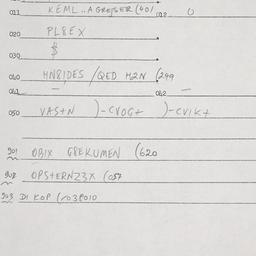 011 KEML..AGREJSER (401 012 0
020 PL8EX
030 $
040 HN8IDES /QED H2N (299
061 — 062 —
050 VAS+N )-CVOG+ )-CVIK+
901 OBIX G8EKUMEN (620
902 OPS+ERNZ3X (057
903 DI KOP